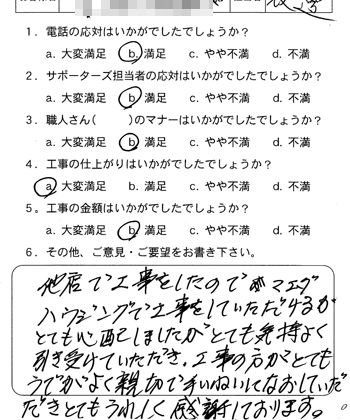 1．電話の応対はいかがでしたでしょうか？
a. 大変満足 b. 満足 c. やや不満 d. 不満
2．サポーターズ担当者の応対はいかがでしたでしょうか？
a. 大変満足 b. 満足 c. やや不満 d. 不満
3．職人さん( )のマナーはいかがでしたでしょうか？
a. 大変満足 b. 満足 c. やや不満 d. 不満
4．工事の仕上がりはいかがでしたでしょうか？
a. 大変満足 b. 満足 c. やや不満 d. 不満
5．工事の金額はいかがでしたでしょうか？
a. 大変満足 b. 満足 c. やや不満 d. 不満
6．その他、ご意見・ご要望をお書き下さい。
他店で工事をしたのでマエダ
ハウジングで工事をしていただけるか
とても心配しましたがとても気持よく
引き受けていただき、工事の方がとても
うでがよく親切でていねいになおしていただ
だきとてもうれしく感謝しております。